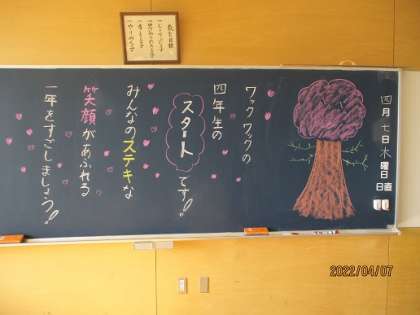 四月七日木曜日
日直
ワックワックの
四年生の
スタートです!!
みんなのステキな
笑顔があふれる
一年をすごしましょう!!
2022/04/07